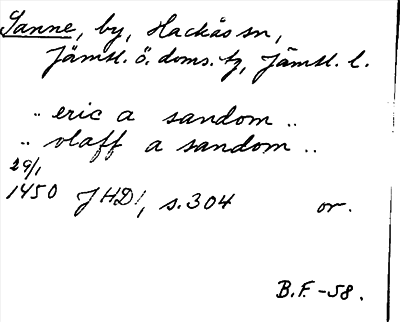 Sanne, by, Hackås sn,
Jämtl. ö. doms. tg, Jämtl. l.
.. eric a sandom ..
.. olaff a sandom ..
29/1
1450 JHD1, s. 304 or.
B.F. -58.